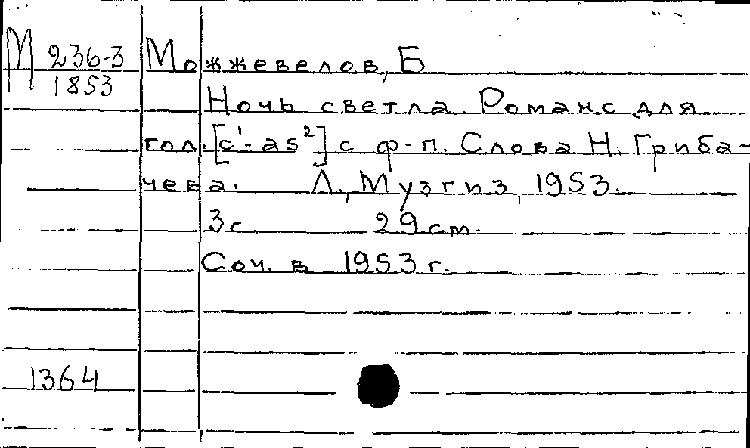 М 236-3
1853
Можжевелов, Б
Ночь светла. Романс для
гол. [c¹-as²] с ф-п. Слова Н. Гриба-
чева. Л., Музгиз, 1953.
3с 29 см.
Соч. в 1953 г.
1364